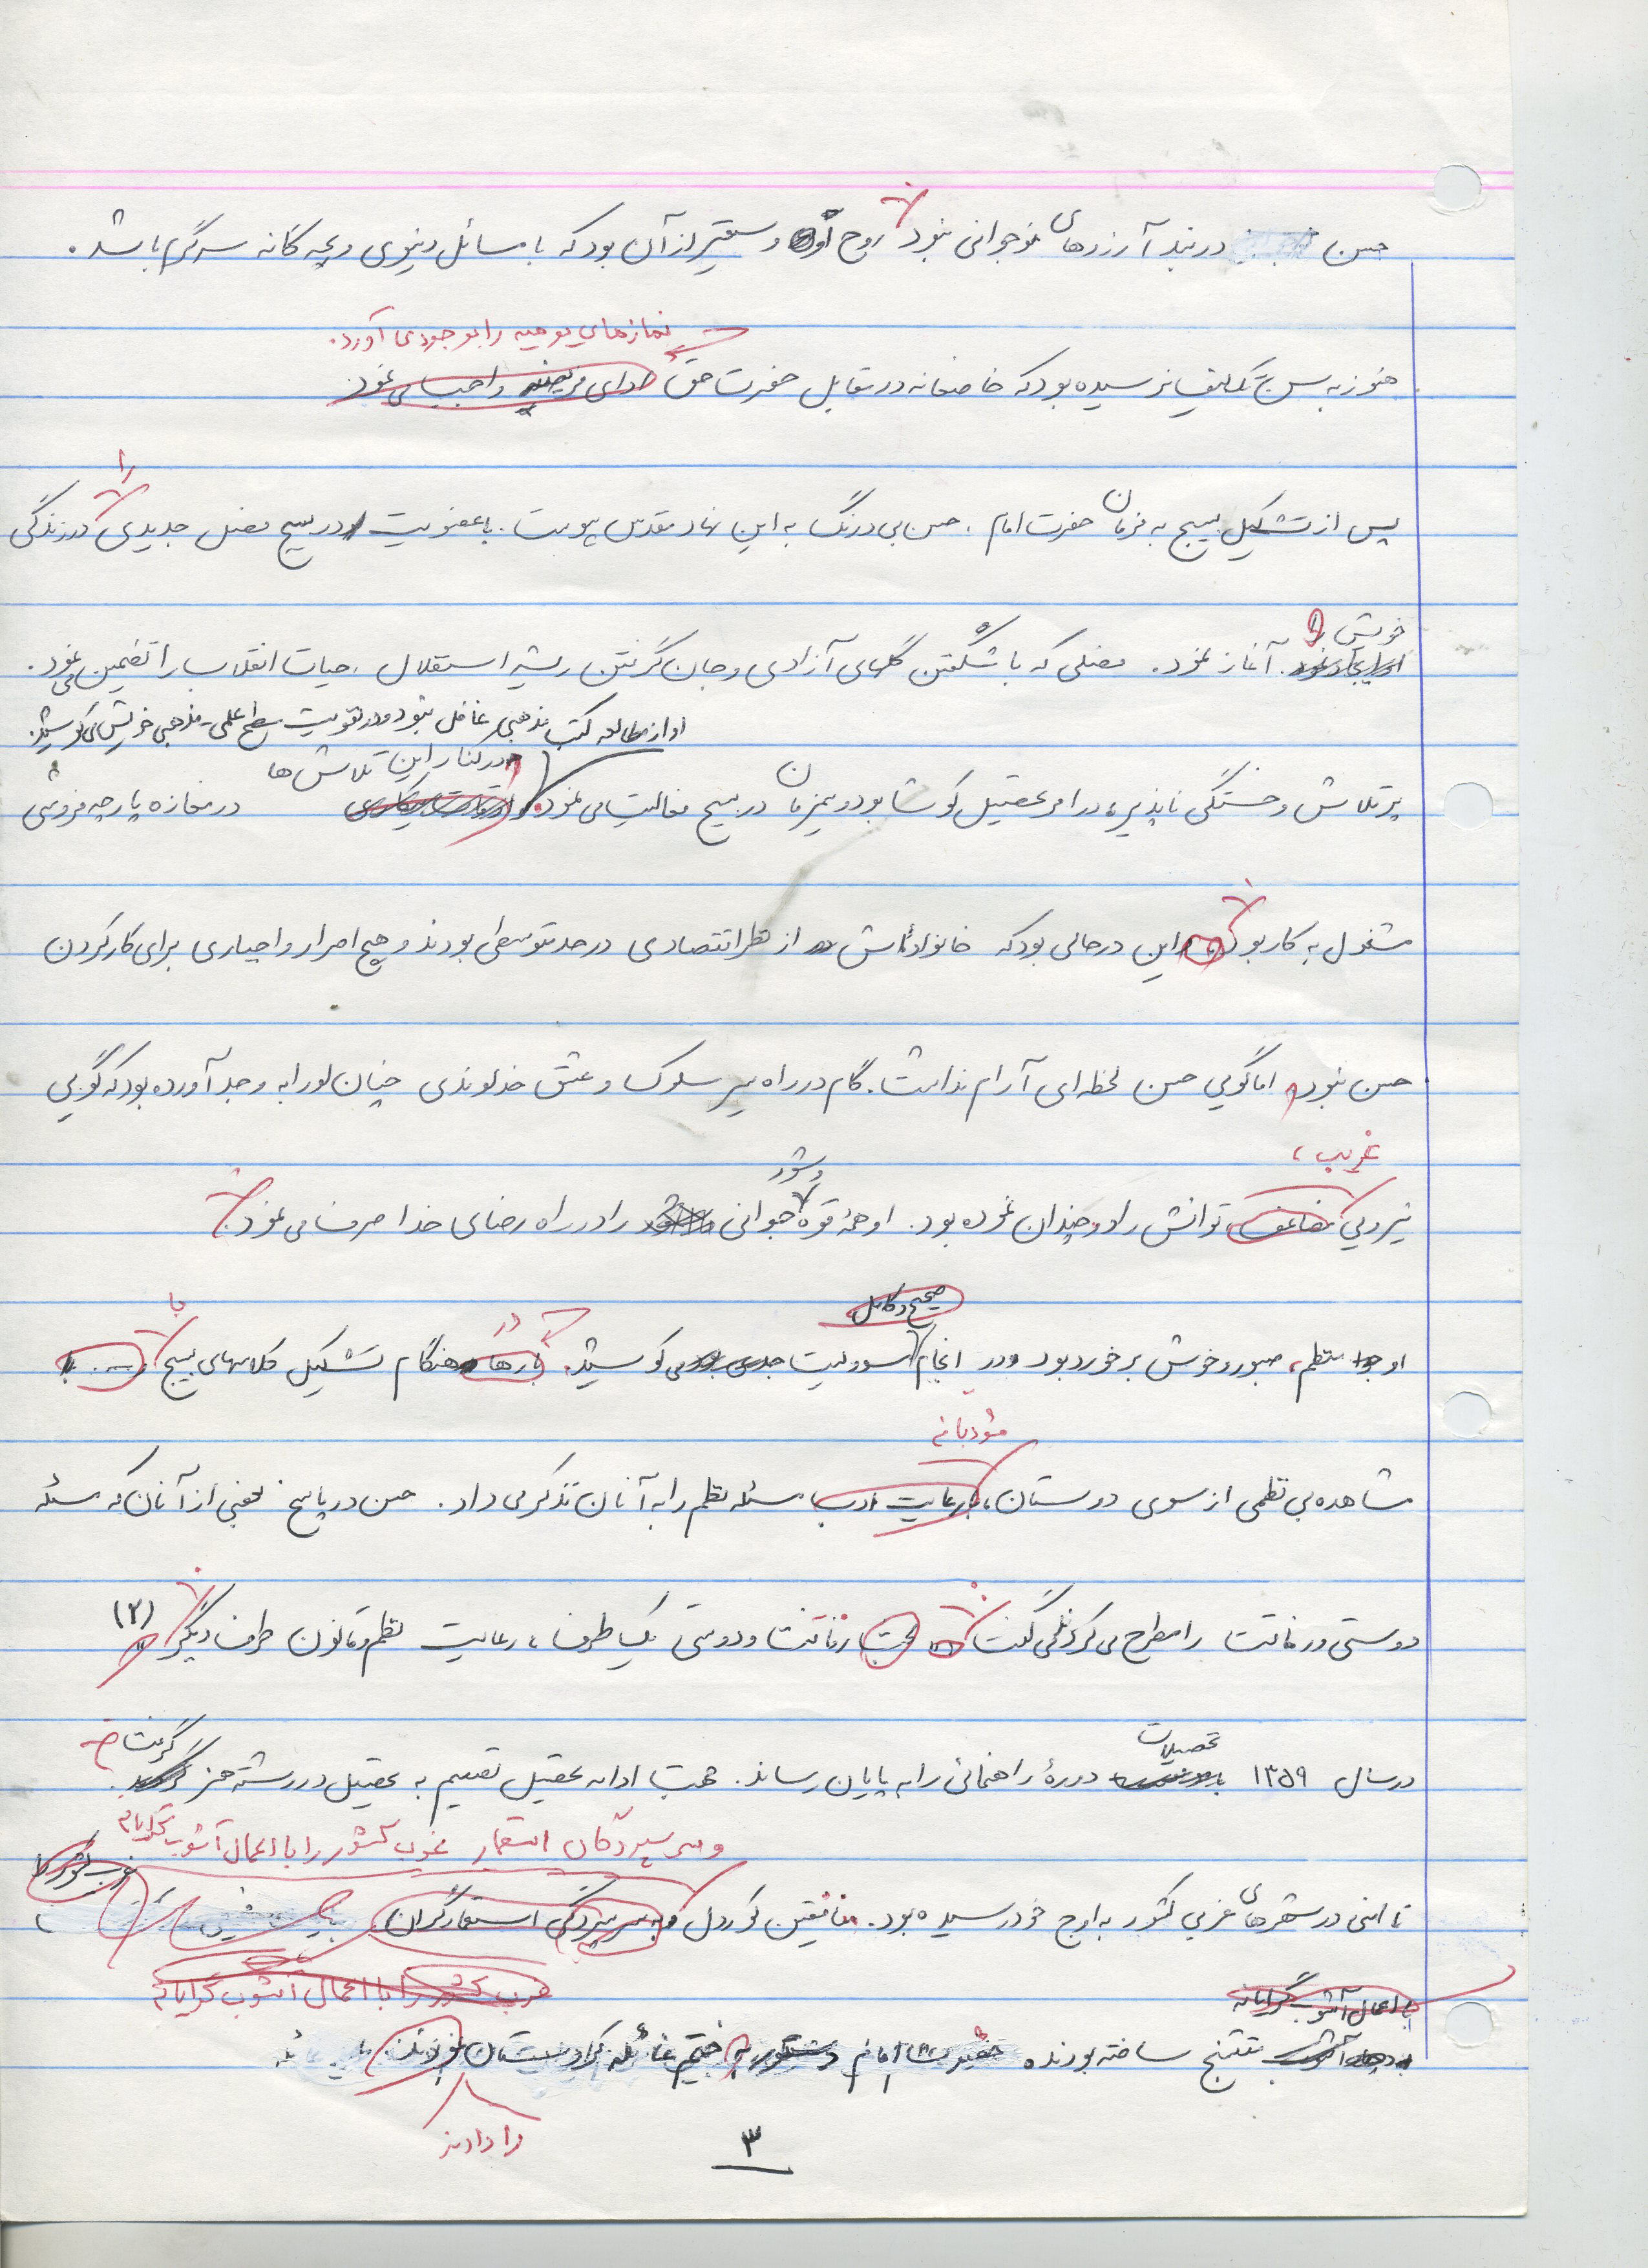 حسن در بند آرزوهای نوجوانی نبود. روح او وسیعتر از آن بود که با مسائل دنیوی و بچه گانه سرگرم باشد.
نمازهای یومیه را بوجود می آورد.
هنوز به سن تکلیف نرسیده بود که خاضعانه در مقابل حضرت حق ادای فریضه واجب می نمود.
را
پس از تشکیل بسیج به فرمان حضرت امام، حسن بی درنگ به این نهاد مقدس پیوست. با عضویت در بسیج فصل جدیدی در زندگی
خویش
آغاز نمود. فصلی که با شکفتن گلهای آزادی و جان گرفتن ریشه استقلال، حیات انقلاب را تضمین می نمود.
او از مطالعه کتب مذهبی غافل نبود و در تقویت سطح علمی - مذهبی خویش می کوشید.
در کنار این تلاش ها
پرتلاش و خستگی ناپذیر، در امر تحصیل کوشا بود و همزمان در بسیج فعالیت می نمود. در مغازه پارچه فروشی
مشغول به کار بود. این در حالی بود که خانواده اش از نظر اقتصادی در حد متوسطی بودند و هیچ اصرار و اجباری برای کار کردن
حسن نبود، اما گویی حسن لحظه ای آرام نداشت. گام در راه سیر سلوک و عشق خداوندی چنان او را به وجد آورده بود که گویی
غریب،
وشور
نیرویی مضاعف توانش را دو چندان نموده بود. او همۀ قوه جوانی را در راه رضای خدا صرف می نمود.
صحیح و کامل
با
در
او منظم، صبور و خوش برخورد بود و در انجام مسوولیت می کوشید. بارها هنگام تشکیل کلاسهای بسیج
مؤدبانه
مشاهده بی نظمی از سوی دوستان، با رعایت ادب مسئله نظم را به آنان تذکر می داد. حسن در پاسخ بعضی از آنان که مسئله
دوستی و رفاقت را مطرح می کردند می گفت: بحث رفاقت و دوستی یک طرف، رعایت نظم و قانون طرف دیگر. (۲)
تحصیلات
گرفت
در سال ۱۳۵۹ دورۀ راهنمائی را به پایان رساند. جهت ادامه تحصیل تصمیم به تحصیل در رشته هنر
و سرسپردگان استعمار غرب کشور را با اعمال آشوب گرایانه
غرب کشور را
ناامنی در شهرهای غربی کشور به اوج خود رسیده بود. منافقین کوردل و به سرسپردگی استعمارگران
غرب کشور را با اعمال آشوب گرایانه
با اعمال آشوب گرایانه
متشنج ساخته بودند. حضرت امام دستور ختم غائله کردستان
را دادند
۳